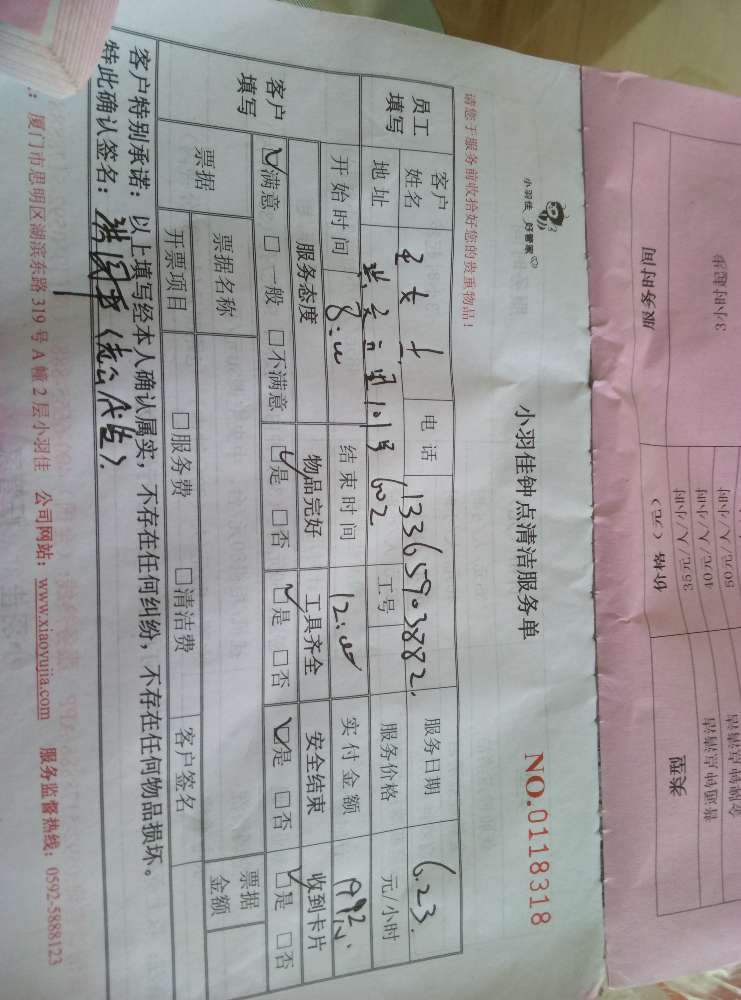 小羽佳 好管家
小羽佳钟点清洁服务单
NO.0118318
请您于服务前收拾好您的贵重物品！
员工填写 客户姓名 电话 13365903882. 服务日期 6.23.
地址 101号 602 工号 服务价格 元/小时
客户填写 开始时间 8:00 结束时间 12:00 实付金额
服务态度 物品完好 工具齐全 安全结束 收到卡片
☑满意 □一般 □不满意 ☑是 □否 ☑是 □否 ☑是 □否 ☑是 □否
票据 票据名称 票据金额
开票项目 □服务费 □清洁费 客户签名
客户特别承诺：以上填写经本人确认属实，不存在任何纠纷，不存在任何物品损坏。
特此确认签名：
厦门市思明区湖滨东路319号A幢2层小羽佳 公司网站：www.xiaoyujia.com 服务监督热线：0592-5888123
服务时间 价格（元） 类型
3小时起派
50元/人/小时
40元/人/小时
35元/人/小时